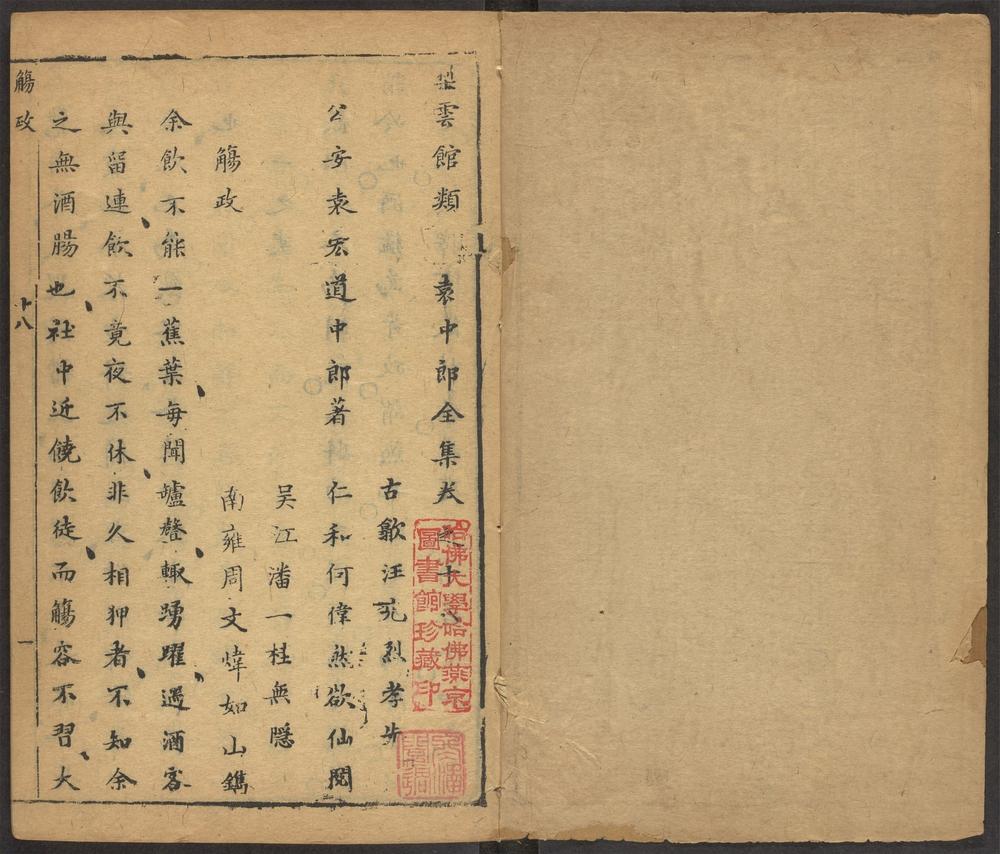 梨雲館類定袁中郎全集卷之十八
古歙汪元烈孝步
公安袁宏道中郎著 仁和何偉然欲仙閱
吳江潘一桂無隱
觴政 南雍周文煒如山鐫
余飲不能一蕉葉每聞壚聲輒踴躍遇酒客
與留連飲不竟夜不休非久相狎者不知余
之無酒腸也社中近饒飲徒而觴容不習大
觴政
十八
一
哈佛大學哈佛燕京
圖書館珍藏印